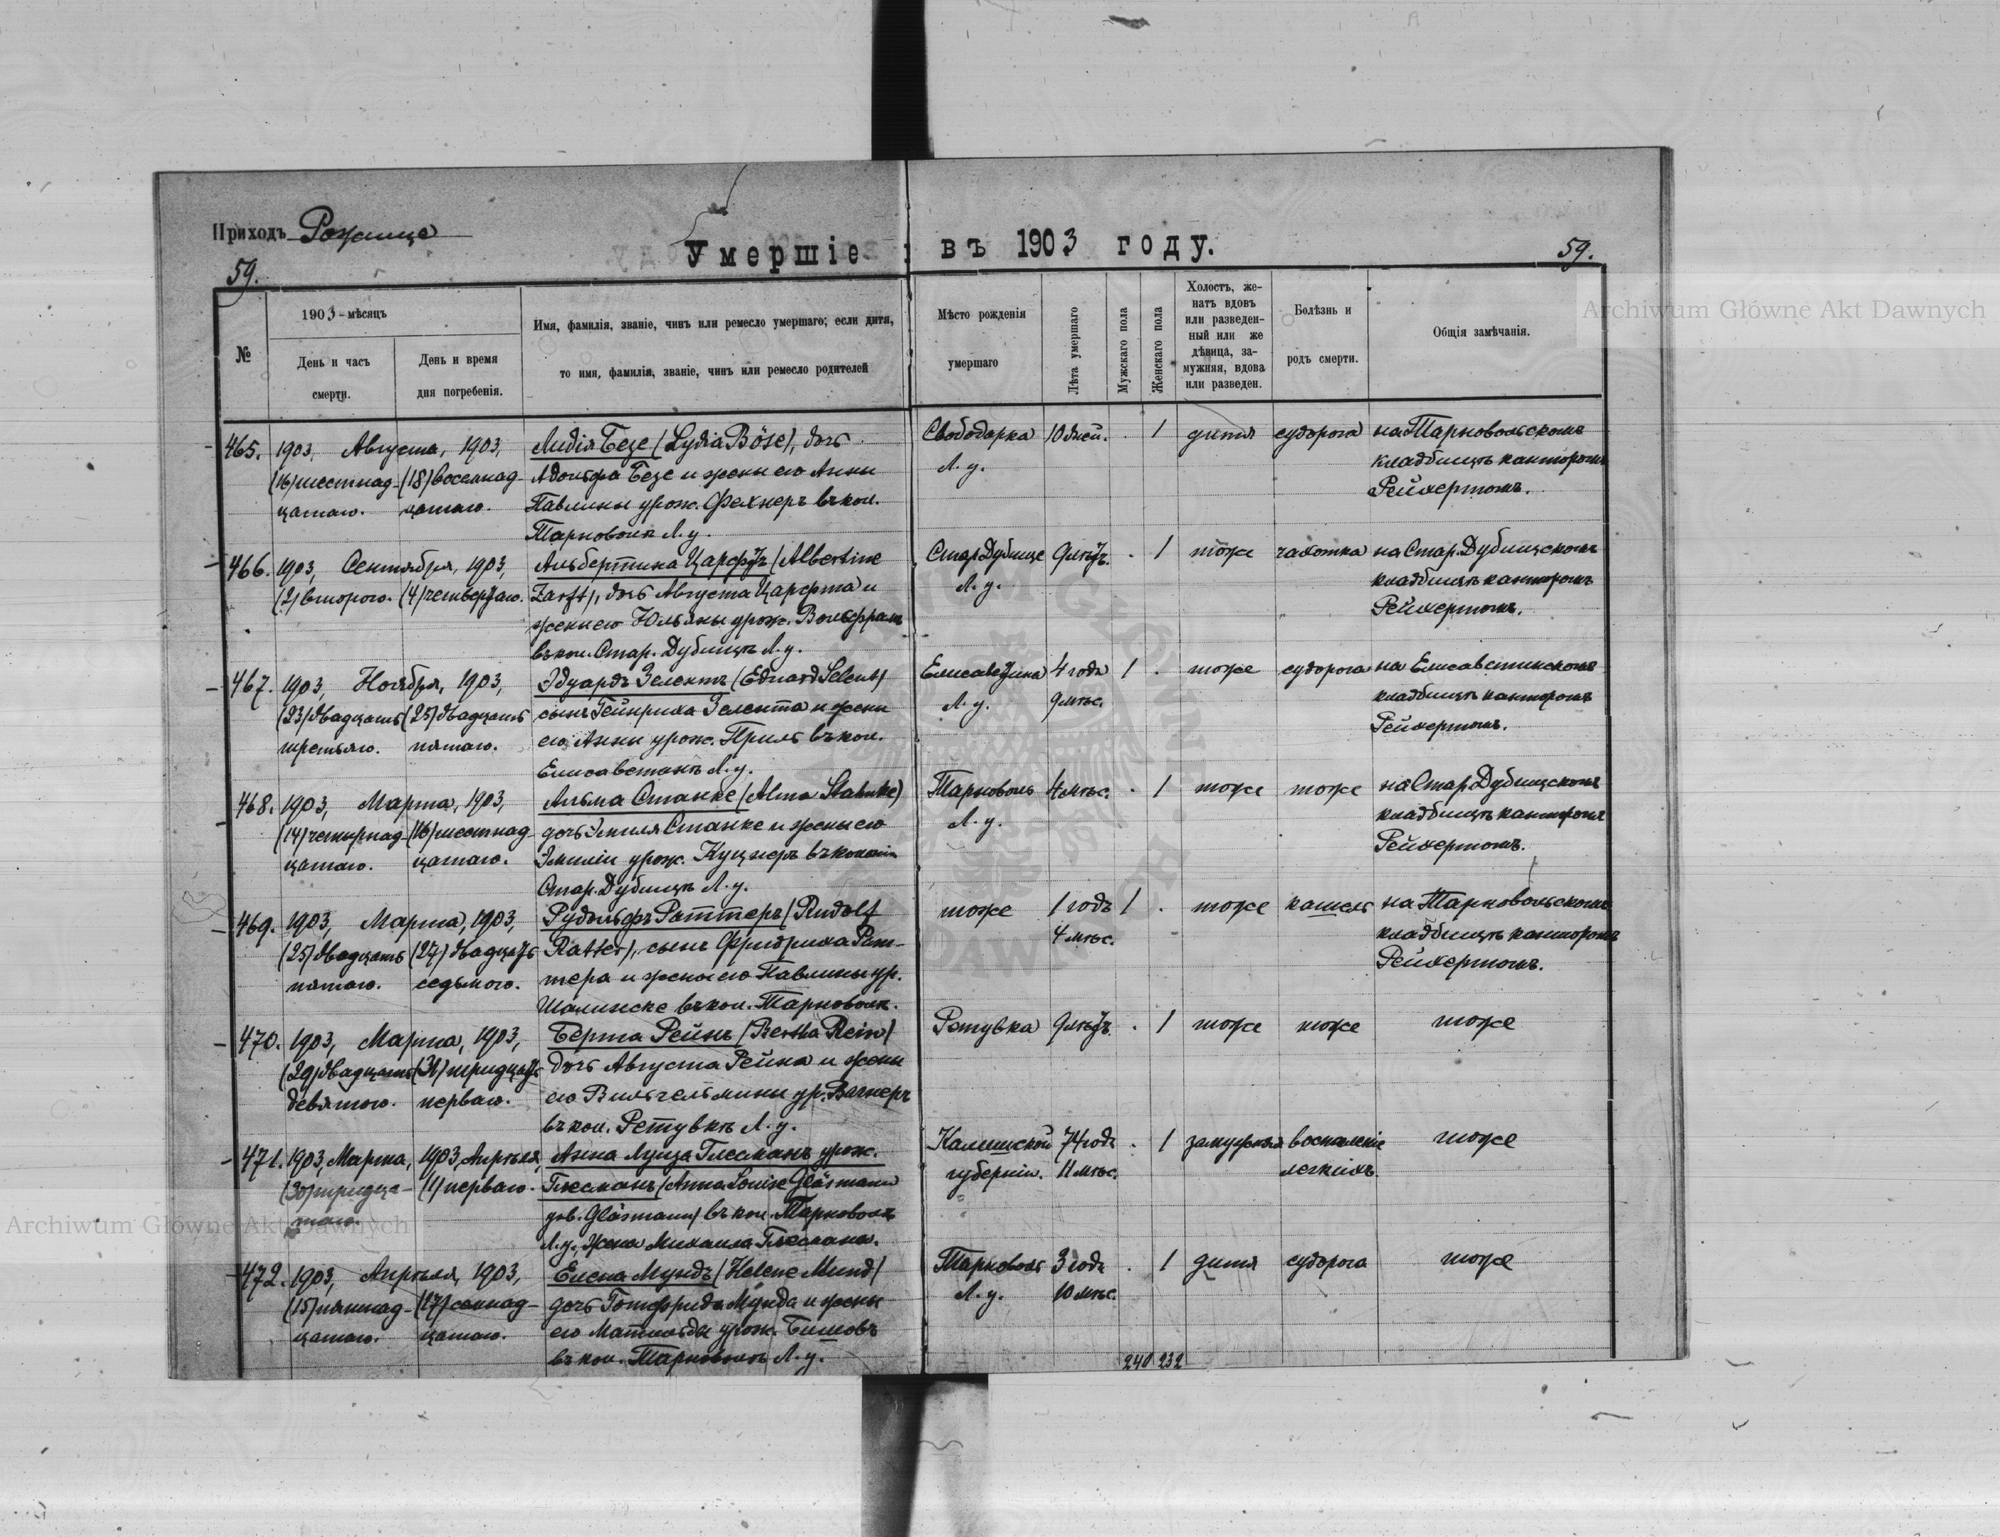 Приходъ Рожище
Умершіе въ 1903 году.
59.
59.
№
1903 - мѣсяцъ
День и часъ
смерти.
День и время
дня погребенія.
Имя, фамилія, званіе, чинъ или ремесло умершаго; если дитя,
то имя, фамилія, званіе, чинъ или ремесло родителей
Мѣсто рожденія
умершаго
Лѣта умершаго
Мужскаго пола
Женскаго пола
Холостъ, же-
натъ вдовъ
или разведен-
ный или же
дѣвица, за-
мужняя, вдова
или разведен.
Болѣзнь и
родъ смерти.
Общія замѣчанія.
465. 1903, Августа, 1903, Лидія Безе (Lydia Böse), дочь Свободарка 10 дней. . 1 дитя судорога на Тарновольскомъ
(16) шестнад- (18) восемнад- Адольфа Безе и жены его Анны Л. у. кладбищѣ канторомъ
цатаго. цатаго. Павлины урож. Фехнеръ въ кол. Рейхертомъ.
Тарноволѣ Л. у.
466. 1903, Сентября, 1903, Альбертина Царфтъ (Albertine Стар. Дубище 9 мѣс. . 1 тоже чахотка на Стар. Дубищскомъ
(2) второго. (4) четвертаго. Zarft), дочь Августа Царфта и Л. у. кладбищѣ канторомъ
жены его Юльяны урож. Вольфрамъ Рейхертомъ.
въ кол. Стар. Дубищѣ Л. у.
467. 1903, Ноября, 1903, Эдуардъ Зелентъ (Eduard Selent) Елисаветина 4 года 1 . тоже судорога на Елисаветинскомъ
(23) двадцать (25) двадцать сынъ Гейнриха Зелента и жены Л. у. 9 мѣс. кладбищѣ канторомъ
третьяго. пятаго. его Анны урож. Приль въ кол. Рейхертомъ.
Елисаветинѣ Л. у.
468. 1903, Марта, 1903, Альма Станке (Alma Stahnke) Тарноволь 4 мѣс. . 1 тоже тоже на Стар. Дубищскомъ
(14) четырнад- (16) шестнад- дочь Эмиля Станке и жены его Л. у. кладбищѣ канторомъ
цатаго. цатаго. Эмиліи урож. Куцнеръ въ колоніи Рейхертомъ.
Стар. Дубищѣ Л. у.
469. 1903, Марта, 1903, Рудольфъ Раттеръ (Rudolf тоже 1 годъ 1 . тоже кашель на Тарновольскомъ
(25) двадцать (27) двадцать Ratter), сынъ Фридриха Рат- 4 мѣс. кладбищѣ канторомъ
пятаго. седьмого. тера и жены его Павлины ур. Рейхертомъ.
Шалинске въ кол. Тарноволѣ.
470. 1903, Марта, 1903, Берта Рейнъ (Bertha Rein) Ретувка 9 мѣс. . 1 тоже тоже тоже
(29) двадцать (31) тридцать дочь Августа Рейна и жены
девятого. перваго. его Вильгельмины ур. Вагнеръ
въ кол. Ретувкѣ Л. у.
471. 1903, Марта, 1903, Апрѣля, Анна Луиза Глесманъ урож. Калишской 74 года . 1 замужняя воспаленіе тоже
(30) тридца- (1) перваго. Глесманъ (Anna Louise Gläsmann губерніи. 11 мѣс. легкихъ.
таго. geb. Gläsmann) въ кол. Тарноволѣ
Л. у., жена Михаила Глесмана.
472. 1903, Апрѣля, 1903, Елена Мундъ (Helene Mund) Тарноволь 3 года . 1 дитя судорога тоже
(15) пятнад- (17) семнад- дочь Готфрида Мунда и жены Л. у. 10 мѣс.
цатаго. цатаго. его Матильды урож. Битовъ
въ кол. Тарноволѣ Л. у.
240 232
Archiwum Główne Akt Dawnych
Archiwum Główne Akt Dawnych